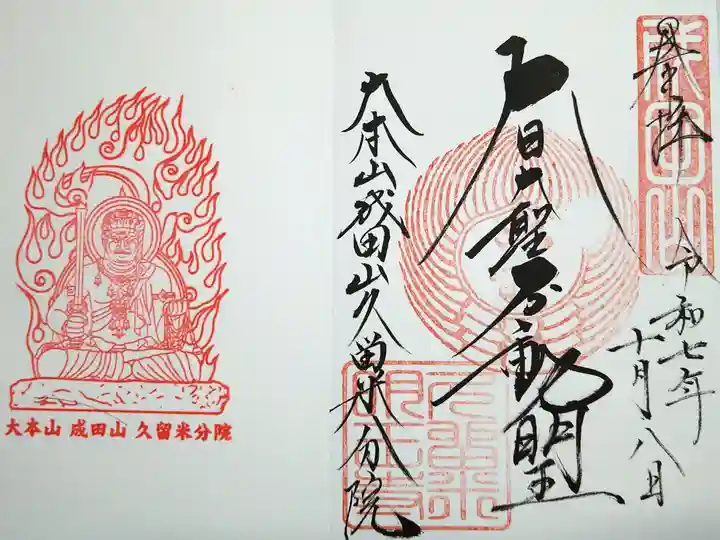 成田山
令和七年
十月八日
大日大聖不動明王
大本山成田山久留米分院
大本山 成田山 久留米分院